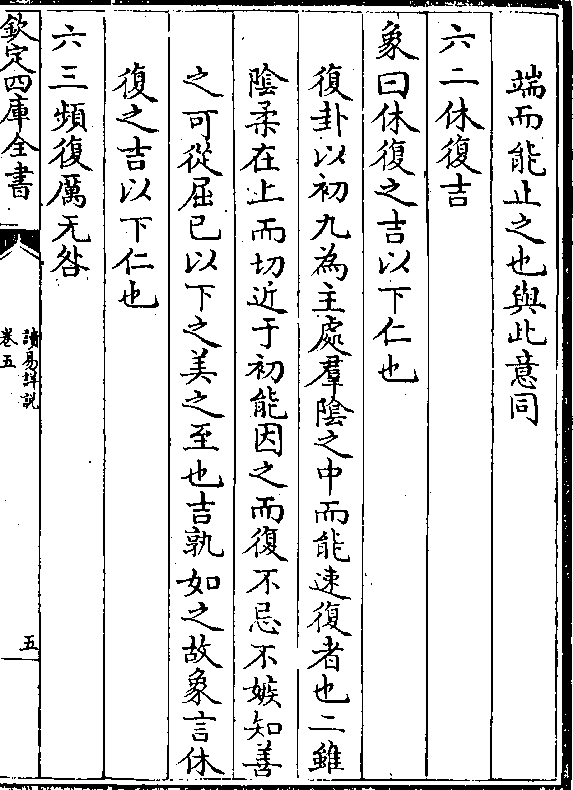 端而能止之也與此意同
六二休復吉
象曰休復之吉以下仁也
復卦以初九為主處羣陰之中而能速復者也二雖
陰柔在上而切近于初能因之而復不忌不嫉知善
之可從屈已以下之美之至也吉孰如之故象言休
復之吉以下仁也
六三頻復厲无咎
欽定四庫全書
讀易詳説
卷五
五